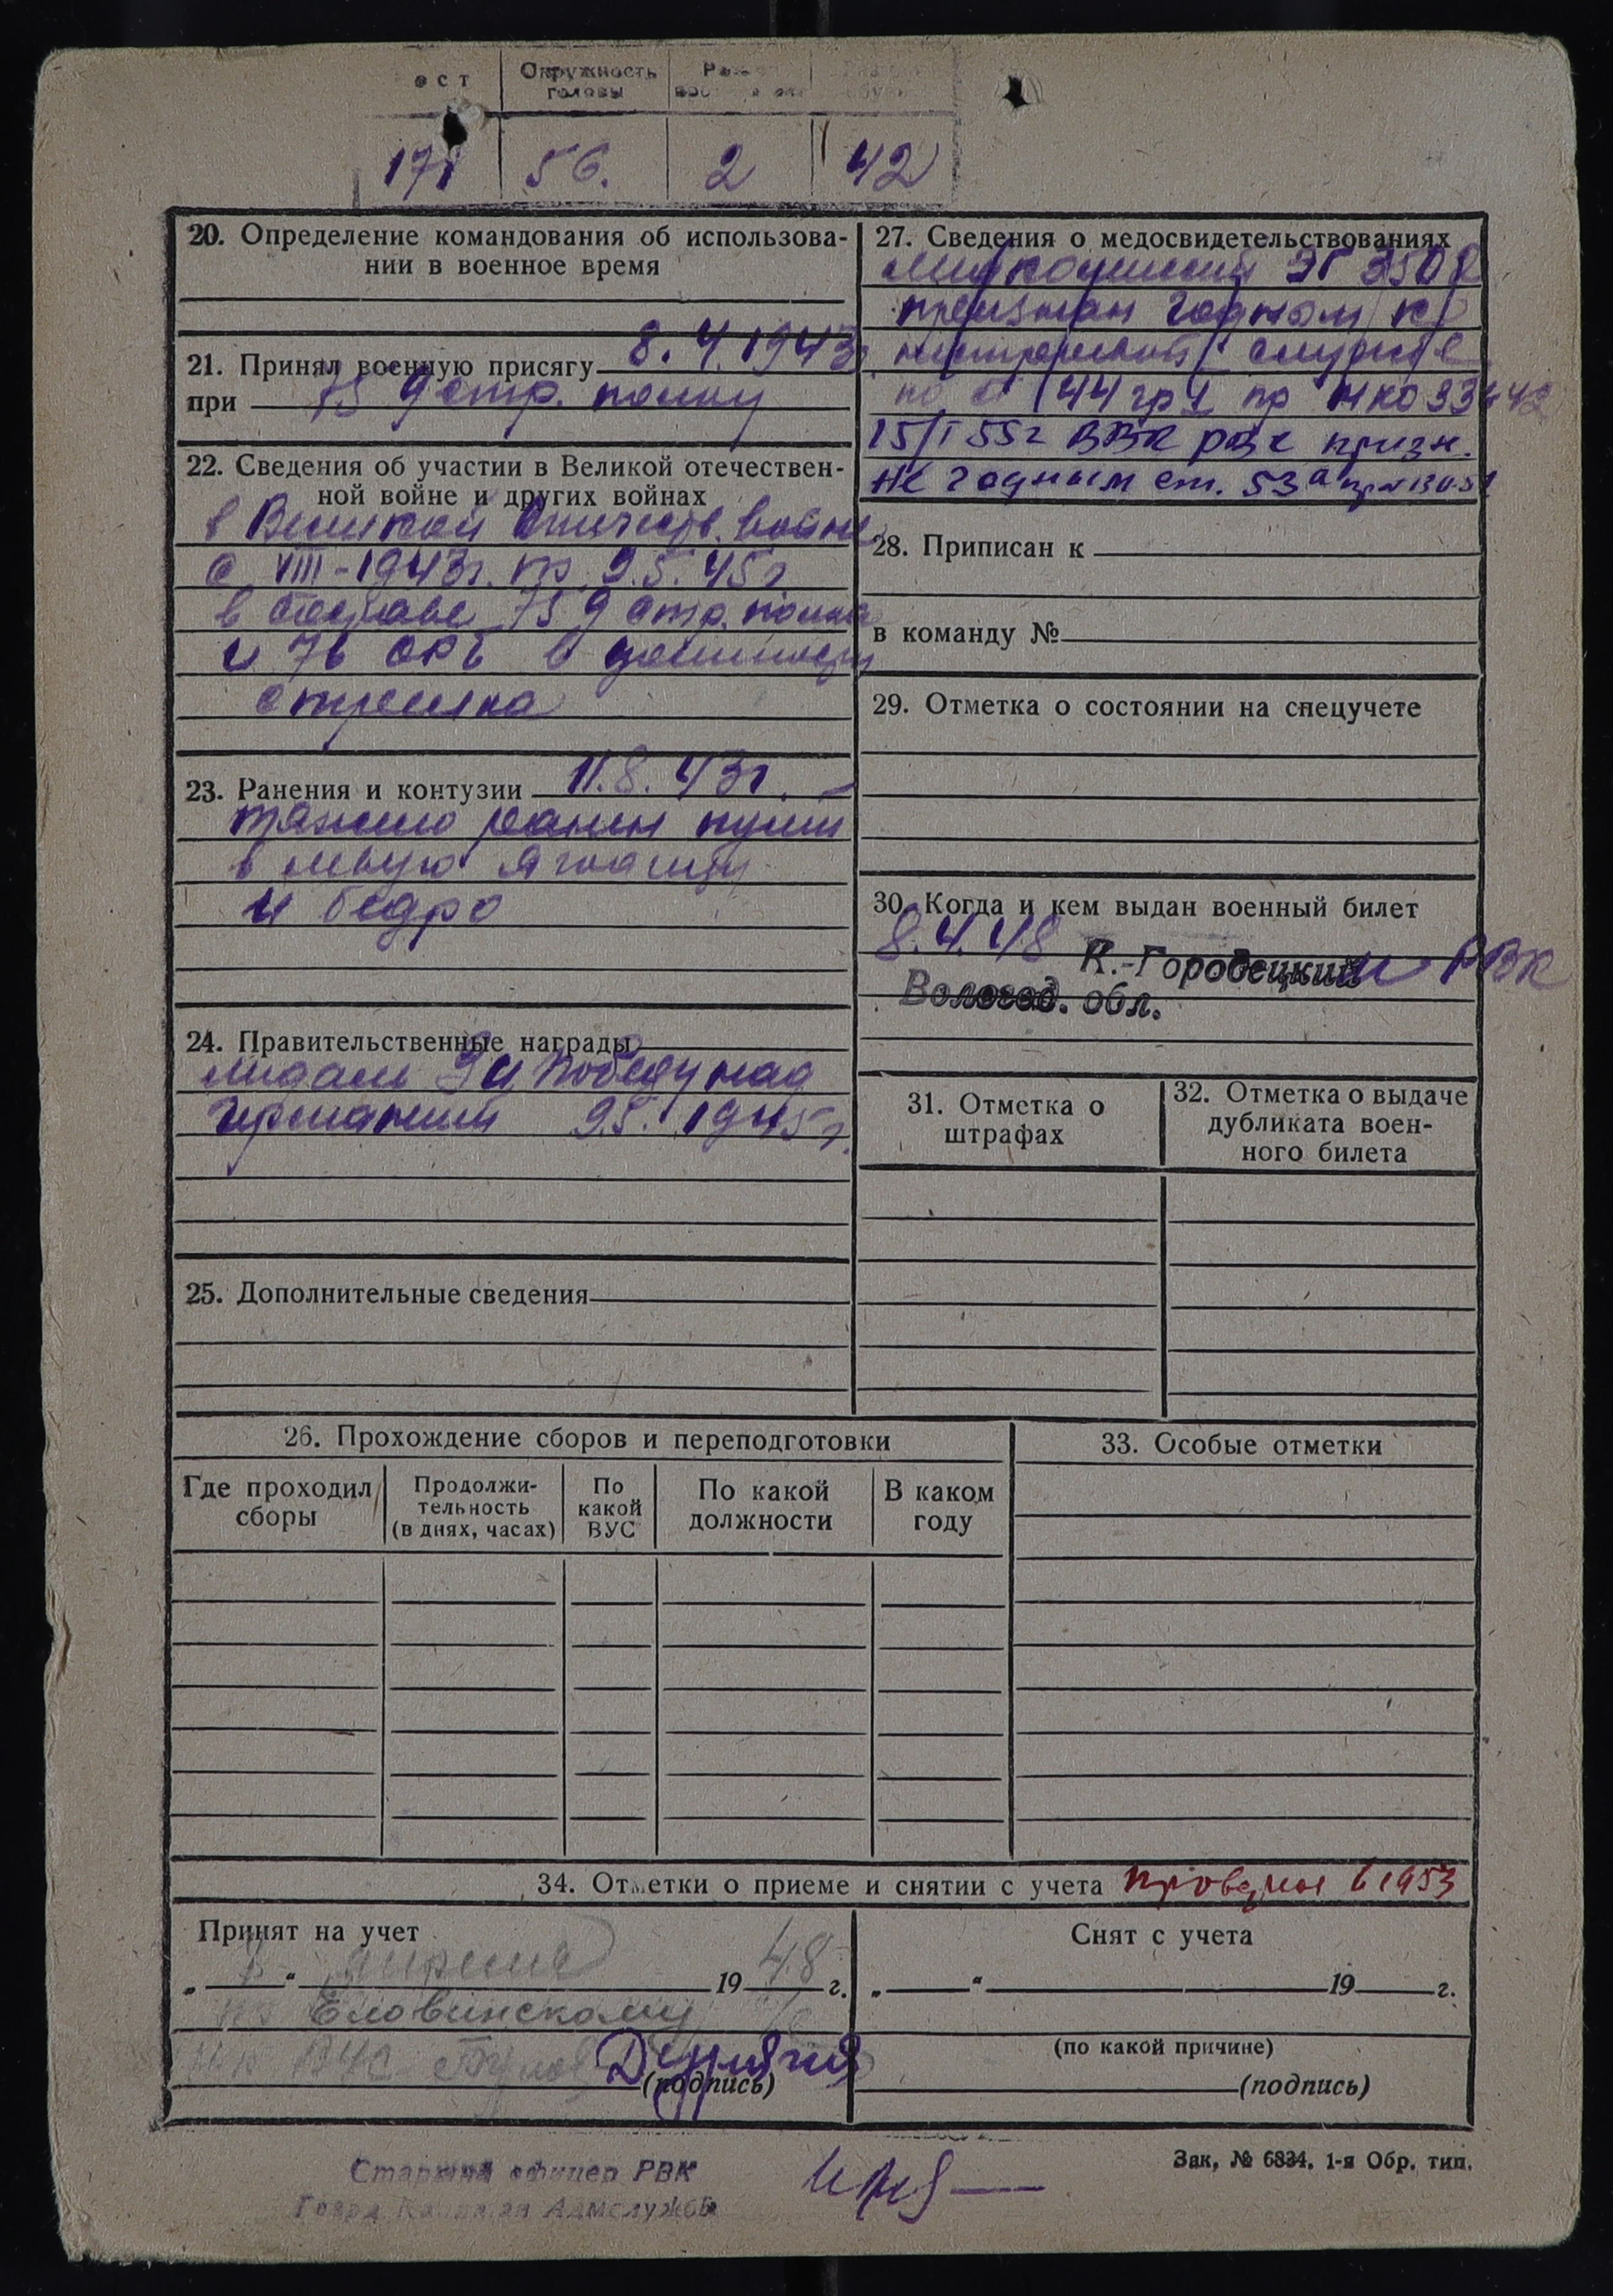 Рост Окружность головы
171 56. 2 42
20. Определение командования об использова-
нии в военное время
21. Принял военную присягу 8.4.1943г
при 759 стр. полку
22. Сведения об участии в Великой отечествен-
ной войне и других войнах
в Великой Отечеств. войне
с VIII-1943г. по 9.5.45г
в составе 759 стр. полка
и 76 ОРБ в должности
стрелка
23. Ранения и контузии 11.8.43г. –
тяжело ранен пулей
в левую ягодицу
и бедро
24. Правительственные награды
медаль За победу над
Германией 9.5.1945г.
25. Дополнительные сведения
26. Прохождение сборов и переподготовки
Где проходил
сборы
Продолжи-
тельность
(в днях, часах)
По
какой
ВУС
По какой
должности
В каком
году
27. Сведения о медосвидетельствованиях
ЭГ
признан годным к
нестроевой службе
по ст 144 гр 1 пр НКО 336 42
15/I 55г ВВК РВК призн.
не годным ст. 53а
28. Приписан к
в команду №
29. Отметка о состоянии на спецучете
30. Когда и кем выдан военный билет
8.4.48 К.-Городецким РВК
Вологод. обл.
31. Отметка о
штрафах
32. Отметка о выдаче
дубликата воен-
ного билета
33. Особые отметки
34. Отметки о приеме и снятии с учета Проверка в 1953
Принят на учет
„ 8 “ апреля 19 48 г.
по Еловинскому
ВУС
(подпись)
Снят с учета
„ “ 19 г.
(по какой причине)
(подпись)
Старший офицер РВК
Гвард Капитан Адмслужбы
Зак. № 6834. 1-я Обр. тип.